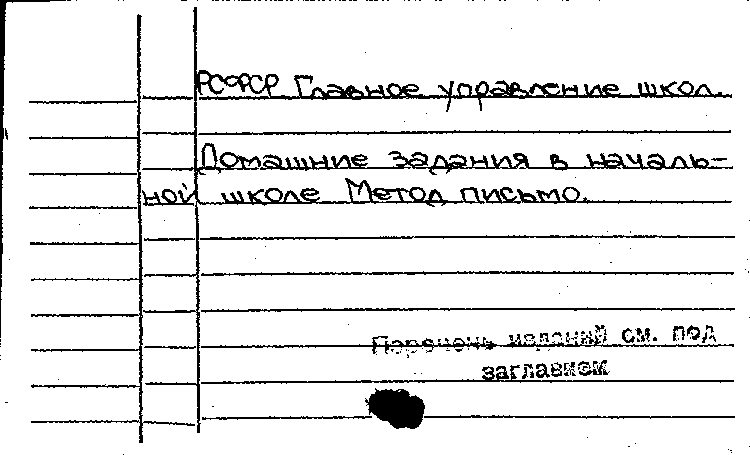 РСФСР Главное управление школ.
Домашние задания в началь-
ной школе Метод письмо.
Перечень изданий см. под
заглавием